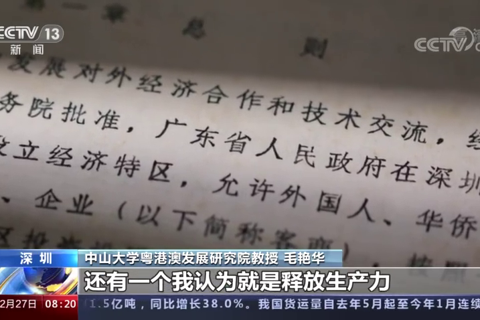 CCTV 13
新闻
CCTV
第一章 总则
发展对外经济合作和技术交流，经
务院批准，广东省人民政府在深圳
立经济特区，允许外国人、华侨
、企业（以下简称客商），按照
深圳
中山大学粤港澳发展研究院教授 毛艳华
还有一个我认为就是释放生产力
2月27日 08:20
1.5亿吨，同比增长38.0%。我国货运量自去年5月起至今年1月连续